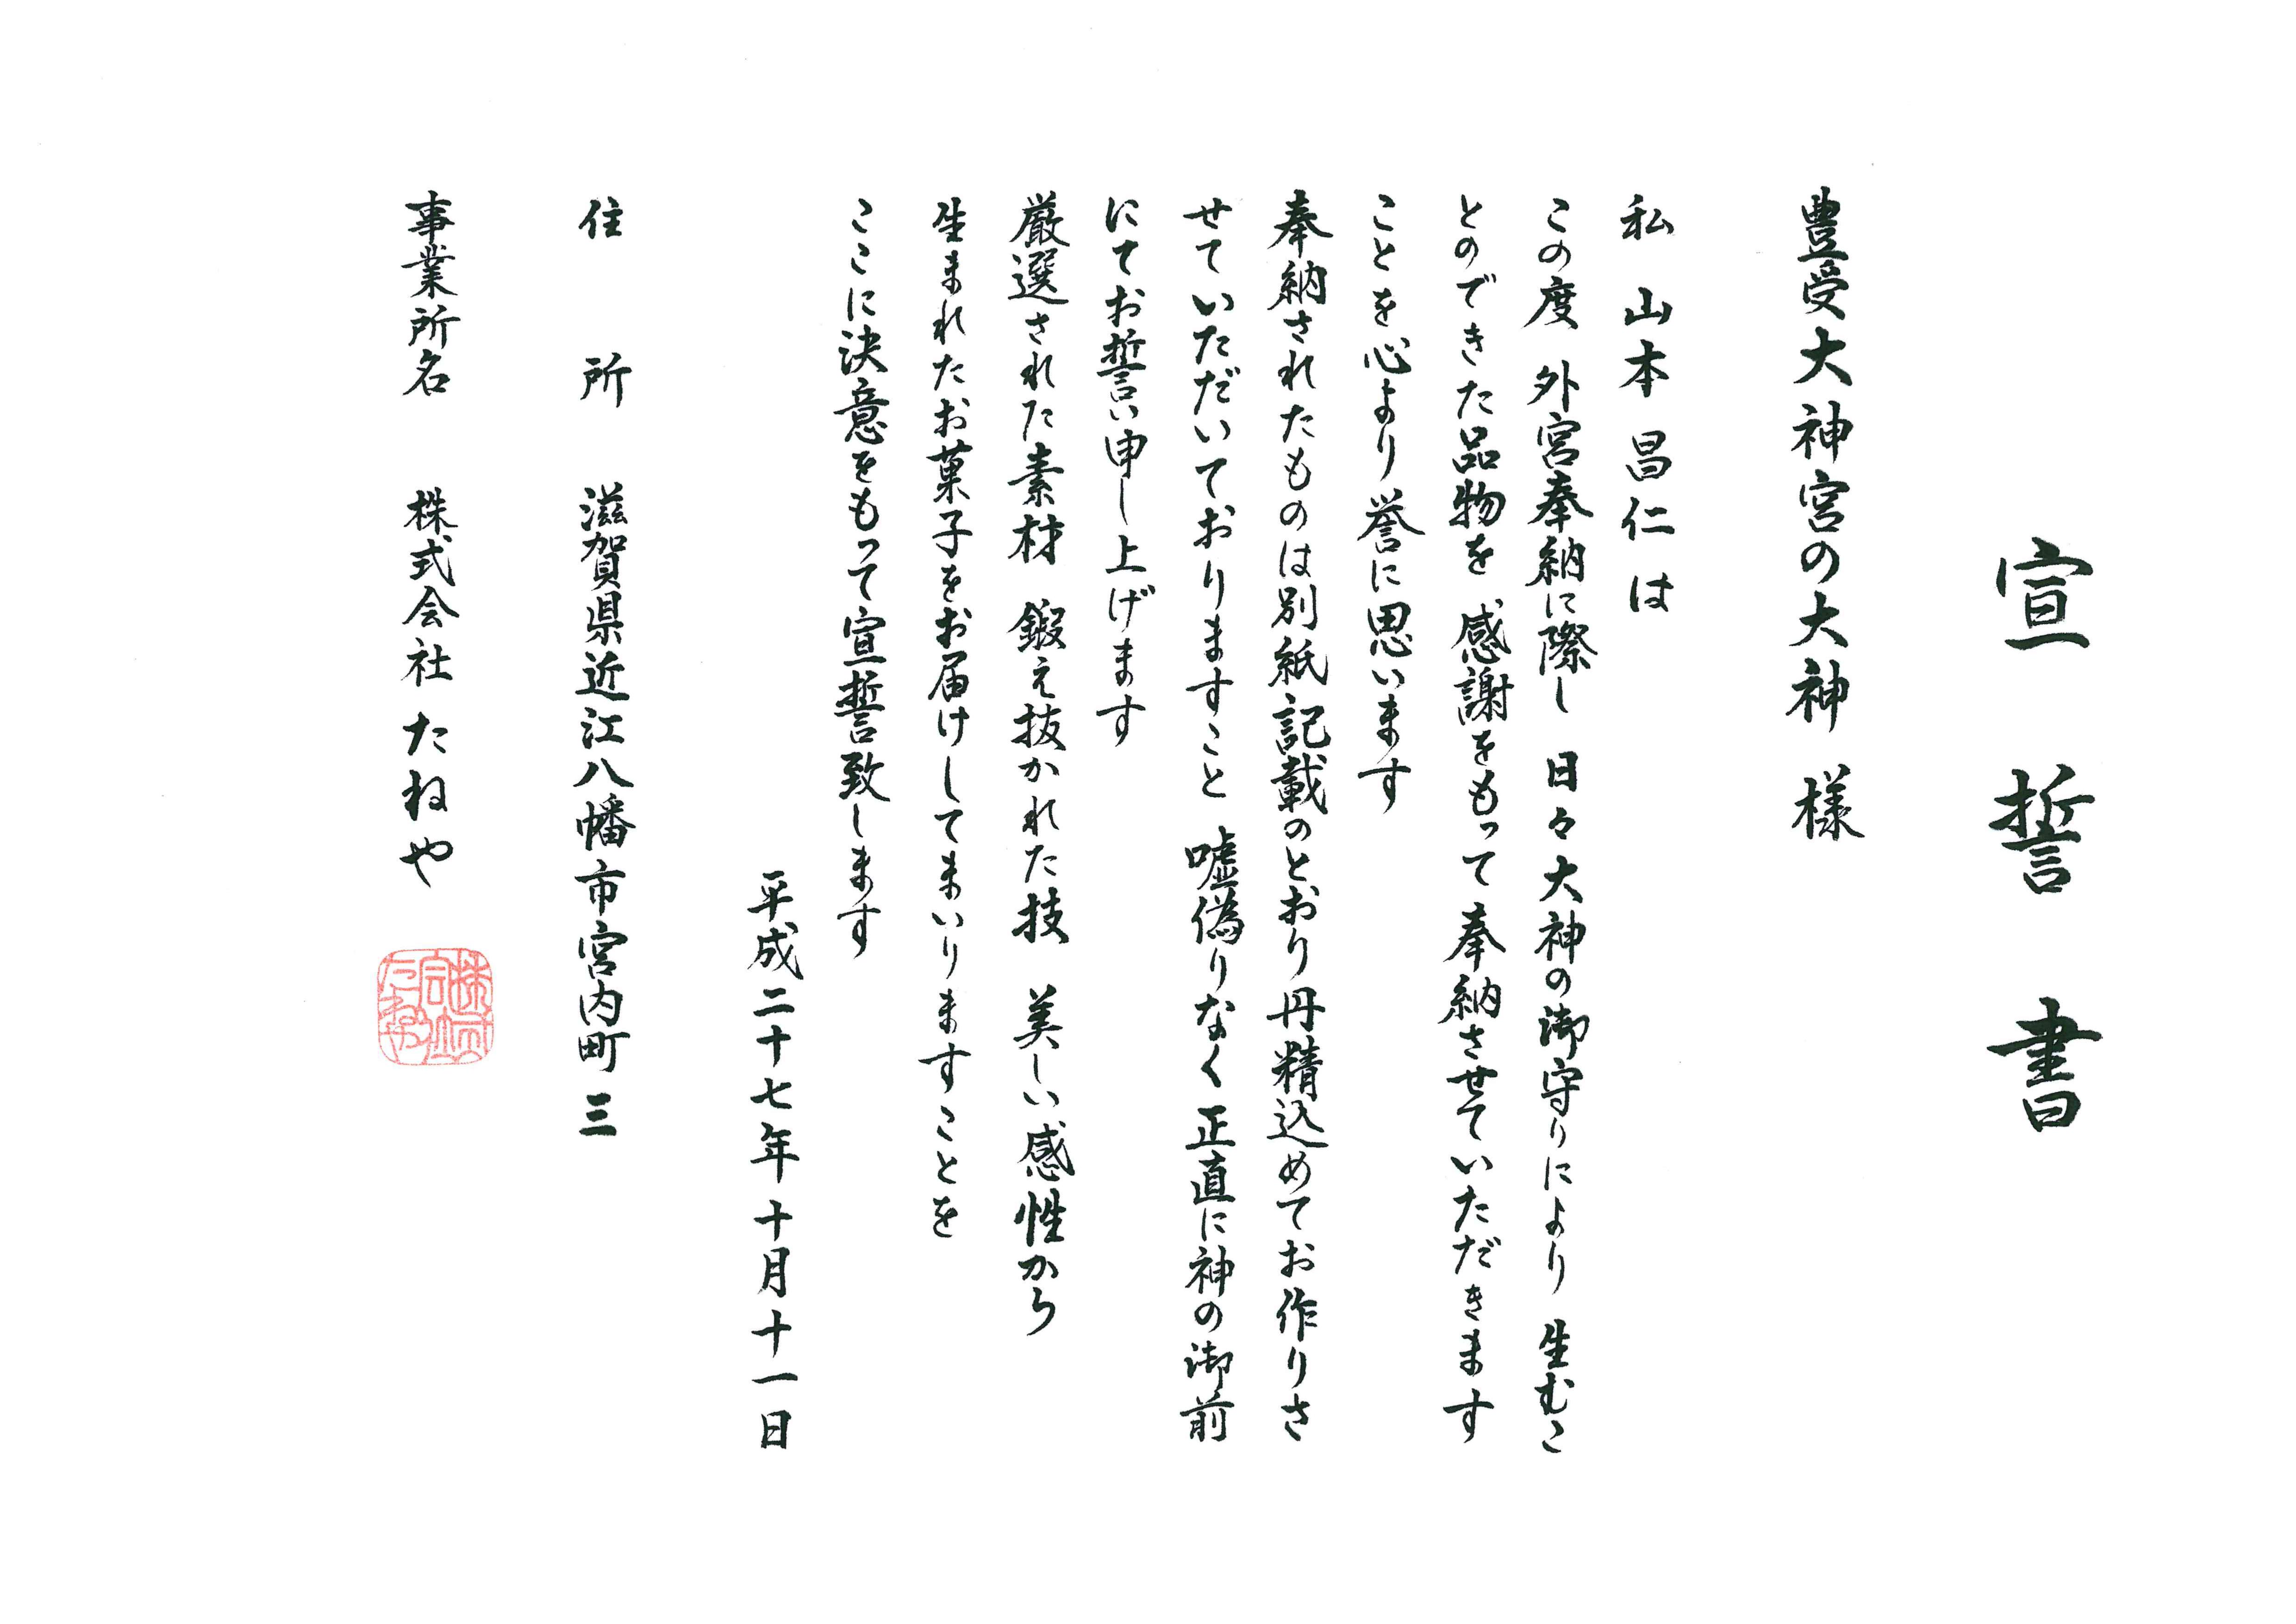 宣誓書
豊受大神宮の大神 様
私 山本 昌仁 は
この度 外宮奉納に際し 日々大神の御守りにより 生むこ
とのできた品物を 感謝をもって 奉納させていただきます
ことを心より誉に思います
奉納されたものは別紙記載のとおり丹精込めてお作りさ
せていただいておりますこと 嘘偽りなく 正直に神の御前
にてお誓い申し上げます
厳選された素材 鍛え抜かれた技 美しい感性から
生まれたお菓子をお届けしてまいりますことを
ここに決意をもって宣誓致します
平成二十七年 十月十一日
住所 滋賀県近江八幡市宮内町 三
事業所名 株式会社 たねや
株式会社たねや